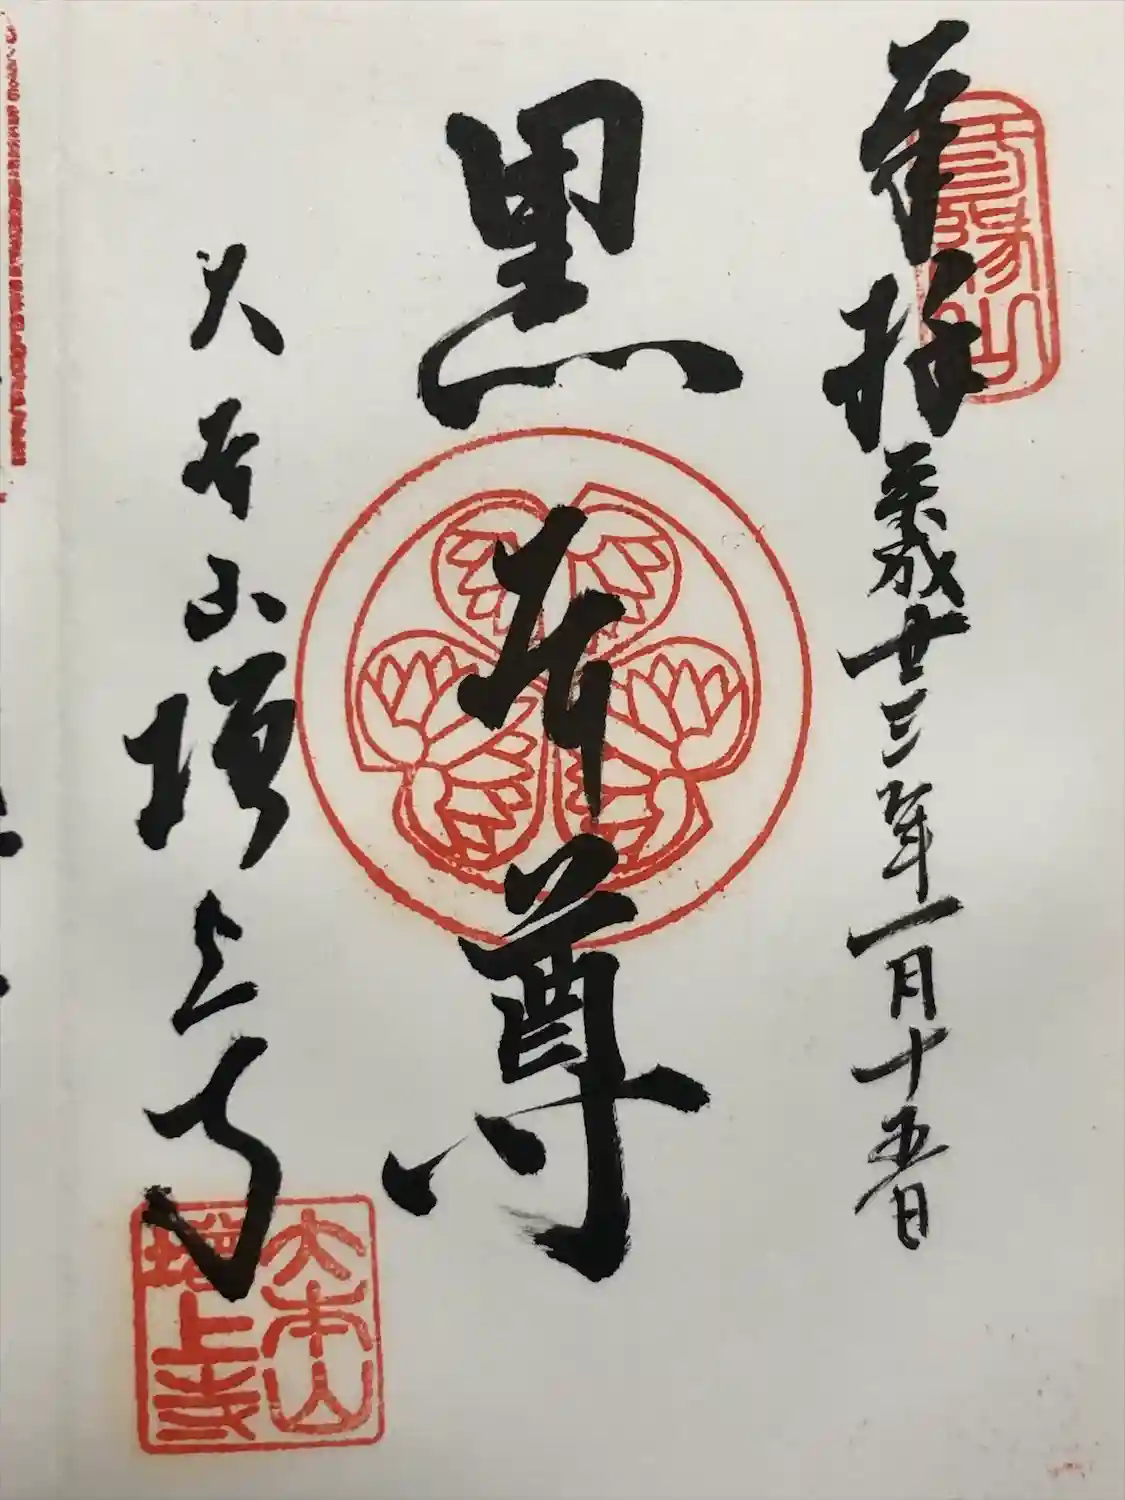 奉拝
平成廿三年一月十五日
黒本尊
大本山増上寺
大本山
増上寺